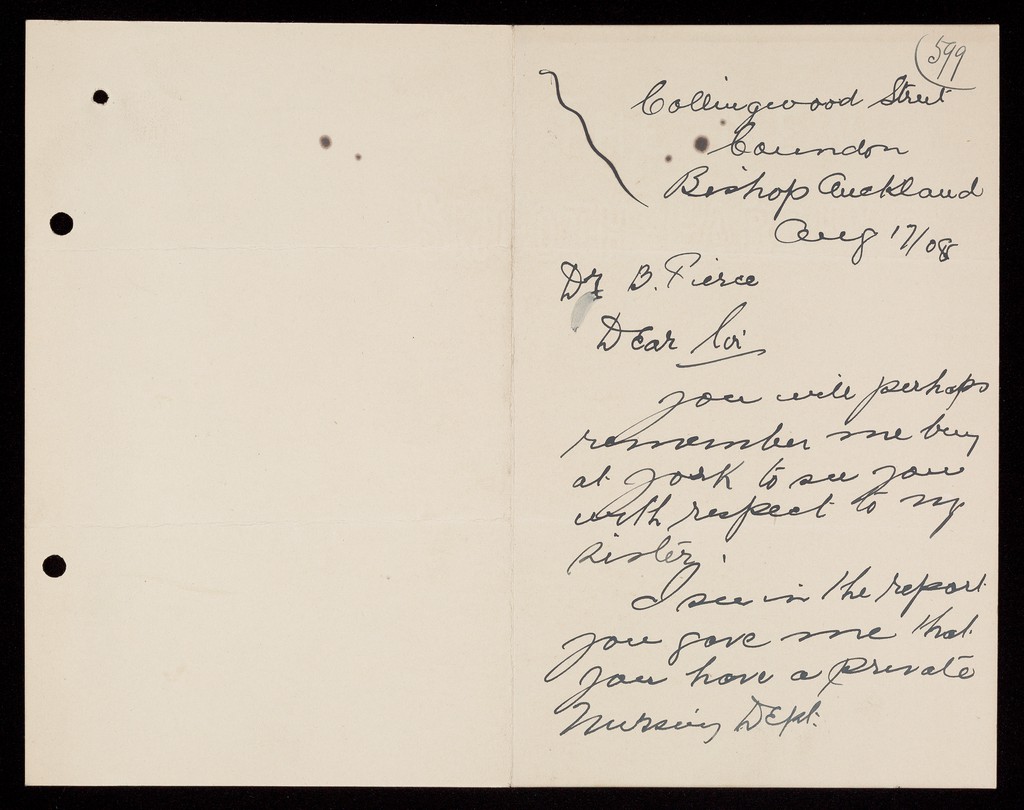 599
Collingwood Street
Coundon
Bishop Auckland
Aug 17/08
Dr B. Pierce
Dear Sir
you will perhaps
remember me being
at York to see you
with respect to my
sister.
I see in the report
you gave me that
you have a private
Nursing Dept.